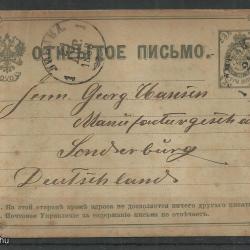 ОТКРЫТОЕ ПИСЬМО.
Herrn Georg Hansen
Manufacturgeschä
Sonderburg
Deutschland
На этой сторонѣ кромѣ адреса не дозволяется ничего другаго писать
Почтовое Управленіе за содержаніе письма не отвѣчаетъ.